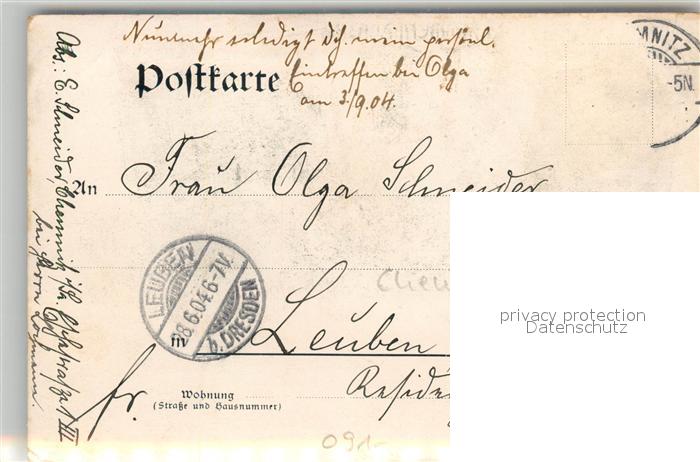 Nunmehr erledigt sich mein persönl.
Eintreffen bei Olga
am 3./9.04.
Postkarte
MNITZ
-5N.
An Frau Olga Schneider
LEUBEN
8.6.04.6-7V.
b. DRESDEN
in Leuben
Wohnung
(Straße und Hausnummer)
fr.
Abs.: E. Schneider, Chemnitz i/Sa.
bei Herrn
091-
privacy protection
Datenschutz